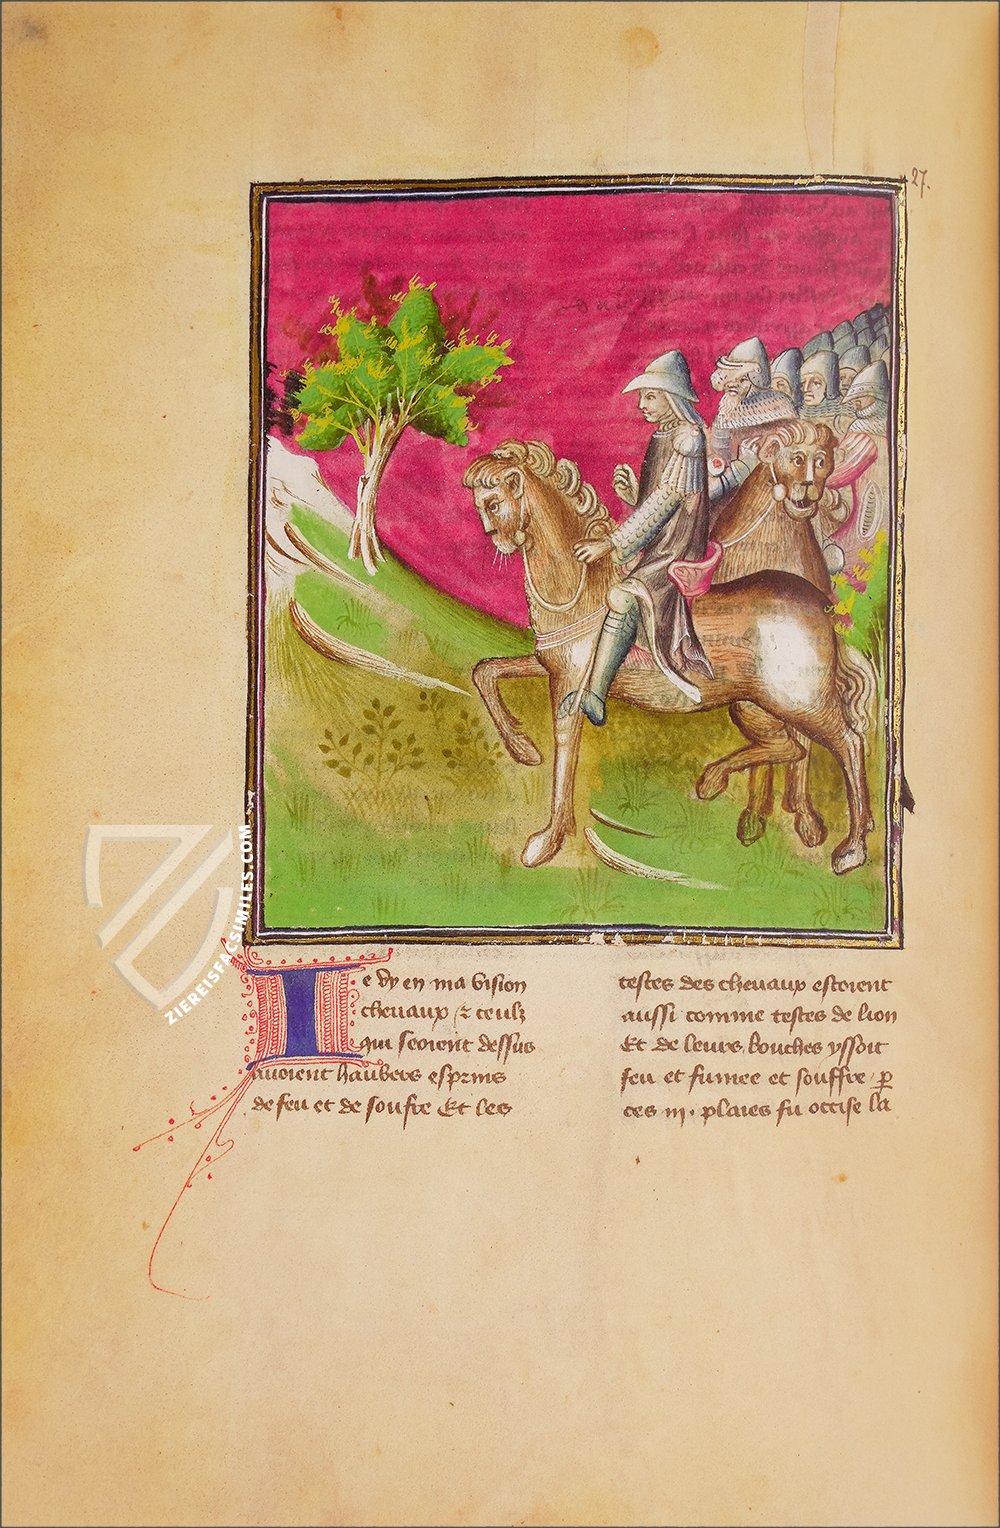 27.
Ie vy en ma vision
chevaux & ceulz
qui seoient dessus
avoient haubers esprins
de feu et de soufre Et les
testes des chevaux estoient
aussi comme testes de lion
Et de leurs bouches yssoit
feu et fumee et souffre p
ces iii. plaies fu occise la
ZIEREISFACSIMILES.COM